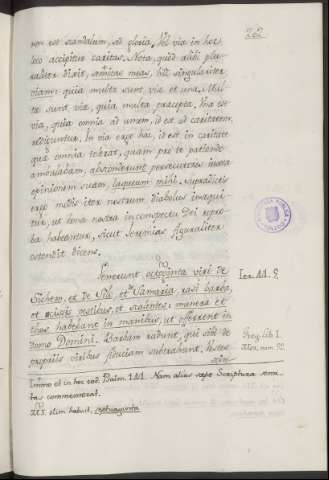 262
non est scandalum, sed gloria. Vel via in hoc
loco accipitur caritas. Nota, quod alibi plu-
raliter dixit, semitas meas, hic singulariter
viam: quia multa sunt via et una. Mul-
tæ sunt viæ, quia multa præcepta. Una est
via, quia omnia ad unam, id est ad caritatem
rediguntur. In via ergo hac, id est in caritate
quæ omnia tolerat, quam pro te patiendo
ambulabam, absconderunt persecutores juxta
opinionem suam, laqueum mihi. supradictis
ergo modis iter nostrum diabolus insequi-
tur, ut bona nostra in conspectu Dei repro-
ba habeantur, sicut Jeremias figuraliter
ostendit dicens.
Venerunt octoginta viri de
Sichem, et de Silo, et de Samaria, rasi barba,
et scissis vestibus, et squalentes: munera et
thus habebant in manibus, ut offerrent in
domo Domini. Barbam radunt, qui sibi de
propriis viribus fiduciam subtrahunt. Vestes
scin-
Ier. 41. 5
Greg. lib. 1
Mor. num.
Immo et in hoc cod. Psalm. 141. Nam alias sæpe Scriptura semi-
tas commemorat.
olim habuit, septuaginta